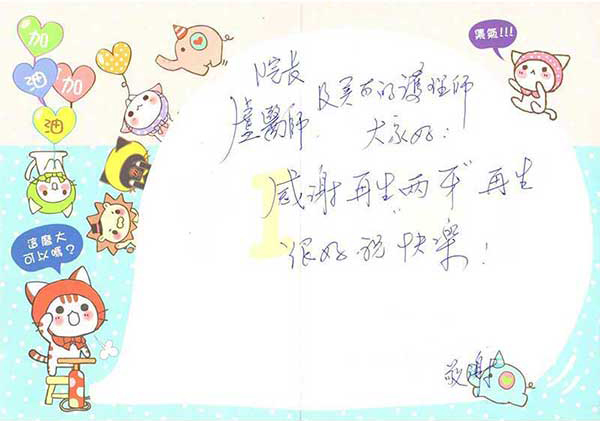 加
油
加
油
集氣!!!
院長
盧醫師 及美麗的護理師
大家好：
感謝再生"兩年"再生
很好祝快樂！
這麼大
可以嗎?
敬謝